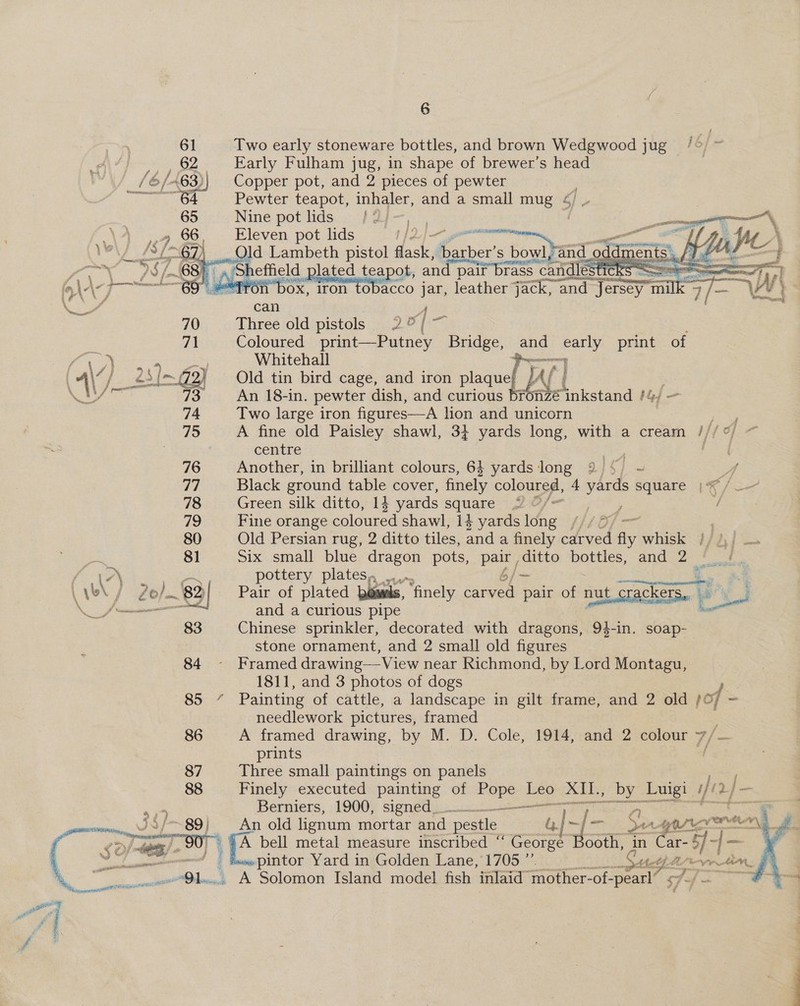 6
61 Two early stoneware bottles, and brown Wedgwood jug
62 Early Fulham jug, in shape of brewer's head
63 Copper pot, and 2 pieces of pewter
64 Pewter teapot, inhaler, and a small mug
65 Nine pot lids
66 Eleven pot lids
67 Old Lambeth pistol flask, barber's bowl, and oddments
68 Sheffield plated teapot, and pair brass candlesticks
69 Iron box, iron tobacco jar, leather jack, and Jersey milk 7/-
can
70 Three old pistols 20/-
71 Coloured print—Putney Bridge, and early print of
Whitehall
72 Old tin bird cage, and iron plaque
73 An 18-in. pewter dish, and curious bronze inkstand
74 Two large iron figures—A lion and unicorn
75 A fine old Paisley shawl, 3½ yards long, with a cream
centre
76 Another, in brilliant colours, 6½ yards long
77 Black ground table cover, finely coloured, 4 yards square
78 Green silk ditto, 1½ yards square
79 Fine orange coloured shawl, 1½ yards long
80 Old Persian rug, 2 ditto tiles, and a finely carved fly whisk
81 Six small blue dragon pots, pair ditto bottles, and 2
pottery plates 6/-
20/- 82 Pair of plated finely carved pair of nut crackers,
and a curious pipe
83 Chinese sprinkler, decorated with dragons, 9½-in. soap-
stone ornament, and 2 small old figures
84 Framed drawing—View near Richmond, by Lord Montagu,
1811, and 3 photos of dogs
85 Painting of cattle, a landscape in gilt frame, and 2 old 10/-
needlework pictures, framed
86 A framed drawing, by M. D. Cole, 1914, and 2 colour 7/-
prints
87 Three small paintings on panels
88 Finely executed painting of Pope Leo XII., by Luigi
Berniers, 1900, signed
89 An old lignum mortar and pestle
90 A bell metal measure inscribed “ George Booth, in Car-
pintor Yard in Golden Lane, 1705 ”
91 A Solomon Island model fish inlaid mother-of-pearl